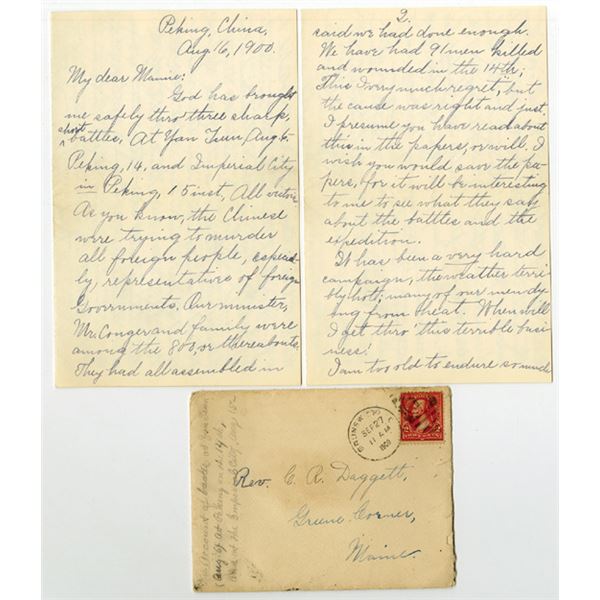 Peking, China,
Aug 16, 1900.
My dear Mamie:
God has brought
me safely thro three sharp,
short
battles. At Yan Tsun, Aug 6,
Peking, 14, and Imperial City
in Peking, 15 inst, All victories
As you know, the Chinese
were trying to murder
all foreign people, especial-
ly, representatives of foreign
Governments. Our minister,
Mr. Conger and family were
among the 800, or thereabouts.
They had all assembled in
2.
said we had done enough.
We have had 91 men killed
and wounded in the 14th;
This I very much regret, but
the cause was right and just.
I presume you have read about
this in the papers, or will. I
wish you would save the pa-
pers, for it will be interesting
to me to see what they say
about the battles and the
expedition.
It has been a very hard
campaign, the weather terri-
bly hot; many of our men dy-
ing from heat. When will
I get thro' this terrible busi-
ness!
I am too old to endure so much
BRUNSWICK
SEP 27
11 AM
1900
Rev. C. R. Daggett,
Greene Corner,
Maine.
Account of battle at
Aug 6, at Peking on the 14th,
and at the Imperial City, Aug 15